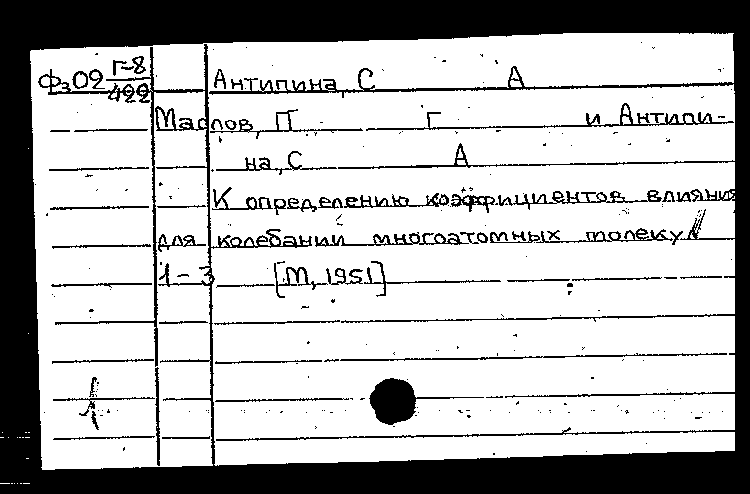 Фз02 Г-8/422 Антипина, С А
Маслов, П Г и Антипи-
на, С А
К определению коэффициентов влияния
для колебаний многоатомных молекул
1-3 [М, 1951]
1